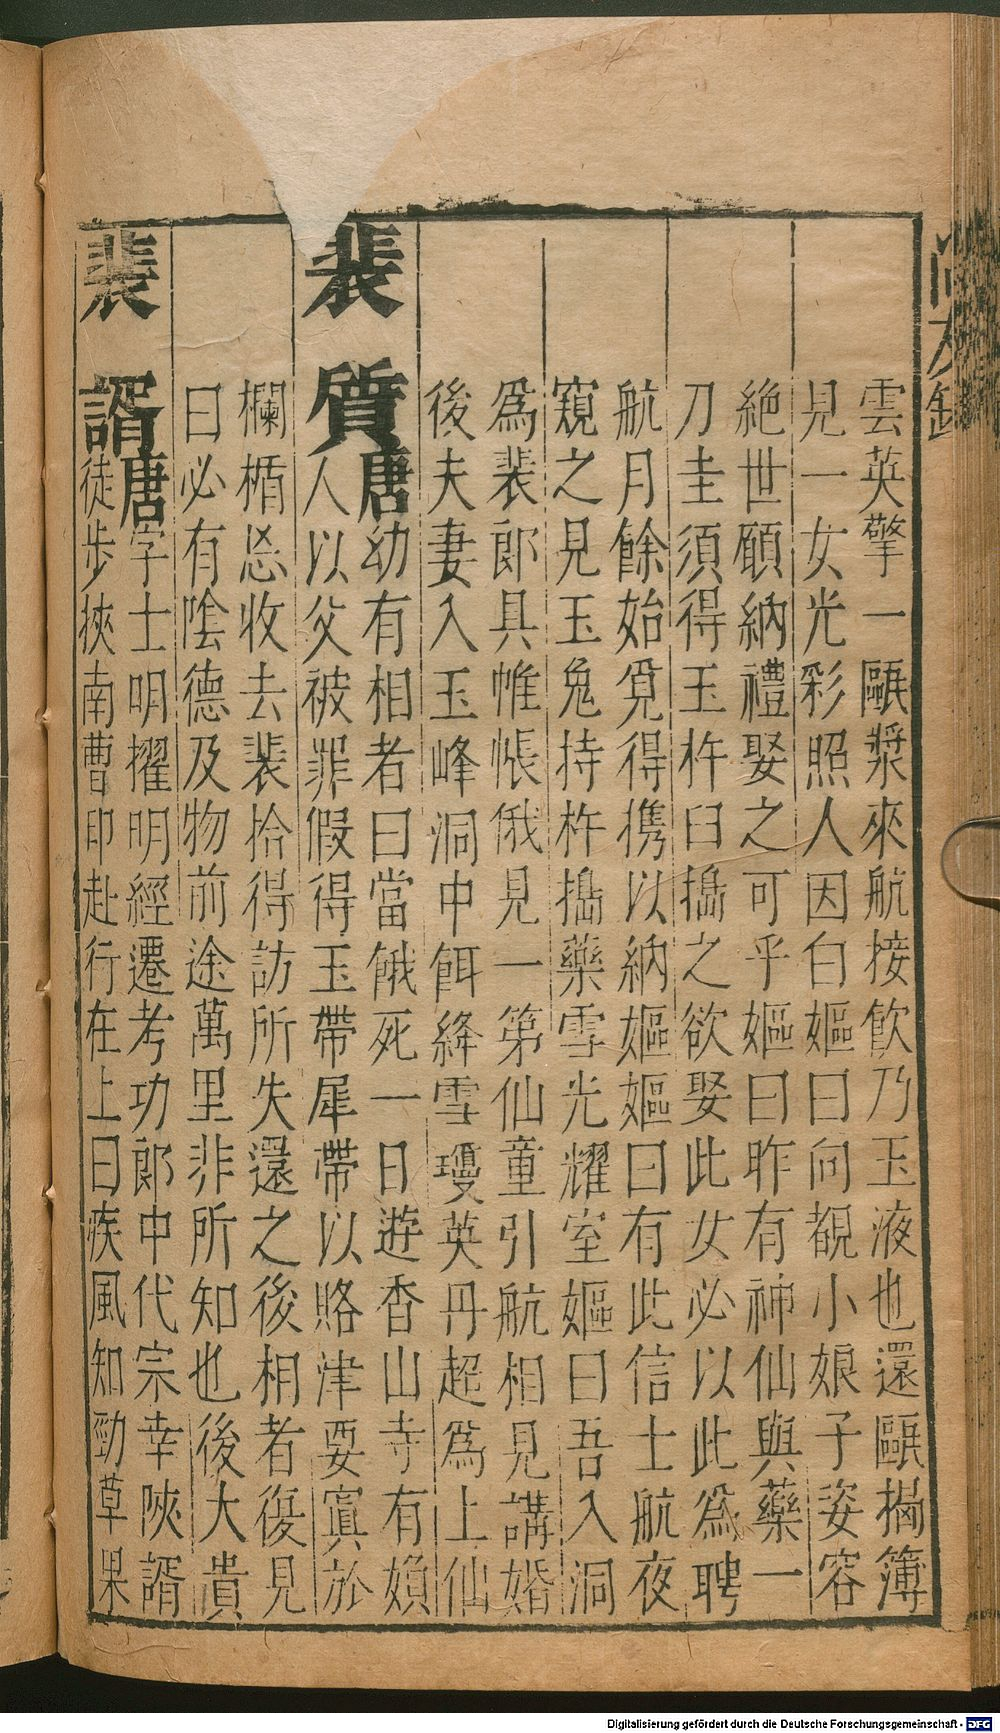 雲英擎一甌漿來航接飲乃玉液也還甌揭簿
見一女光彩照人因白嫗曰向覩小娘子姿容
絶世願納禮娶之可乎嫗曰昨有神仙與藥一
刀圭須得玉杵臼搗之欲娶此女必以此爲聘
航月餘始覓得携以納嫗嫗曰有此信士航夜
窺之見玉兔持杵搗藥雪光耀室嫗曰吾入洞
爲裴郎具帷帳俄見一第仙童引航相見講婚
後夫妻入玉峰洞中餌絳雪瓊英丹超爲上仙
裴質唐幼有相者曰當餓死一日遊香山寺有嫏
人以父被罪假得玉帶犀帶以賂津要寘於
欄楯忘收去裴拾得訪所失還之後相者復見
曰必有陰德及物前途萬里非所知也後大貴
裴諝唐字士明擢明經遷考功郎中代宗幸陜諝
徒步挾南曹印赴行在上曰疾風知勁草果
尚友錄
Digitalisierung gefördert durch die Deutsche Forschungsgemeinschaft - DFG